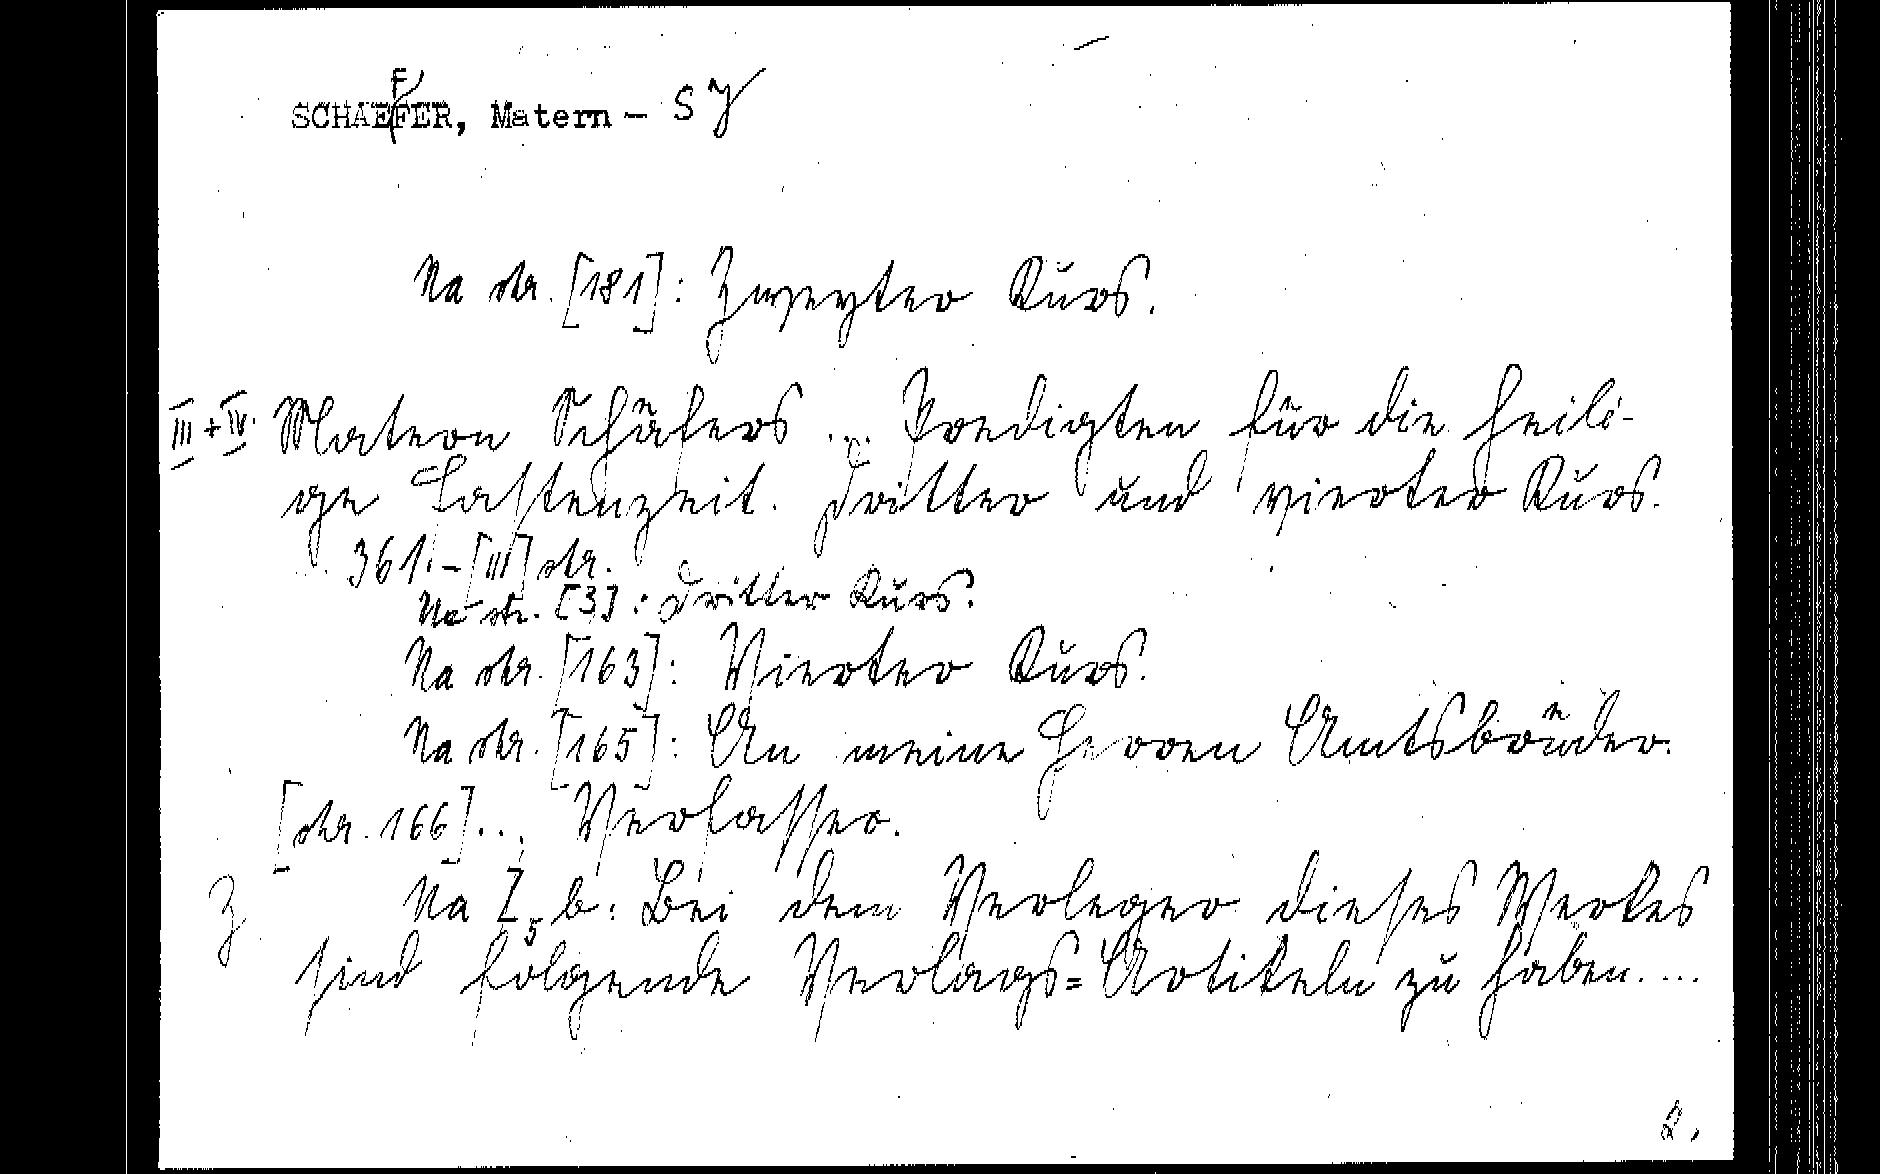 SCHAEFFER, Matern – SJ
Na str. [181]: Zweyter Kurs.
III + IV. Matern Schäfers ... Predigten für die heili-
ge Fastenzeit. Dritter und vierter Kurs.
361.–[III] str.
Na str. [3]: Dritter Kurs.
Na str. [163]: Vierter Kurs.
Na str. [165]: An meine Herren Amtsbrüder.
[str. 166]... Verfasser.
Na Z5b: Bei dem Verleger dieses Werkes
sind folgende Verlags=Artikeln zu haben....
2.